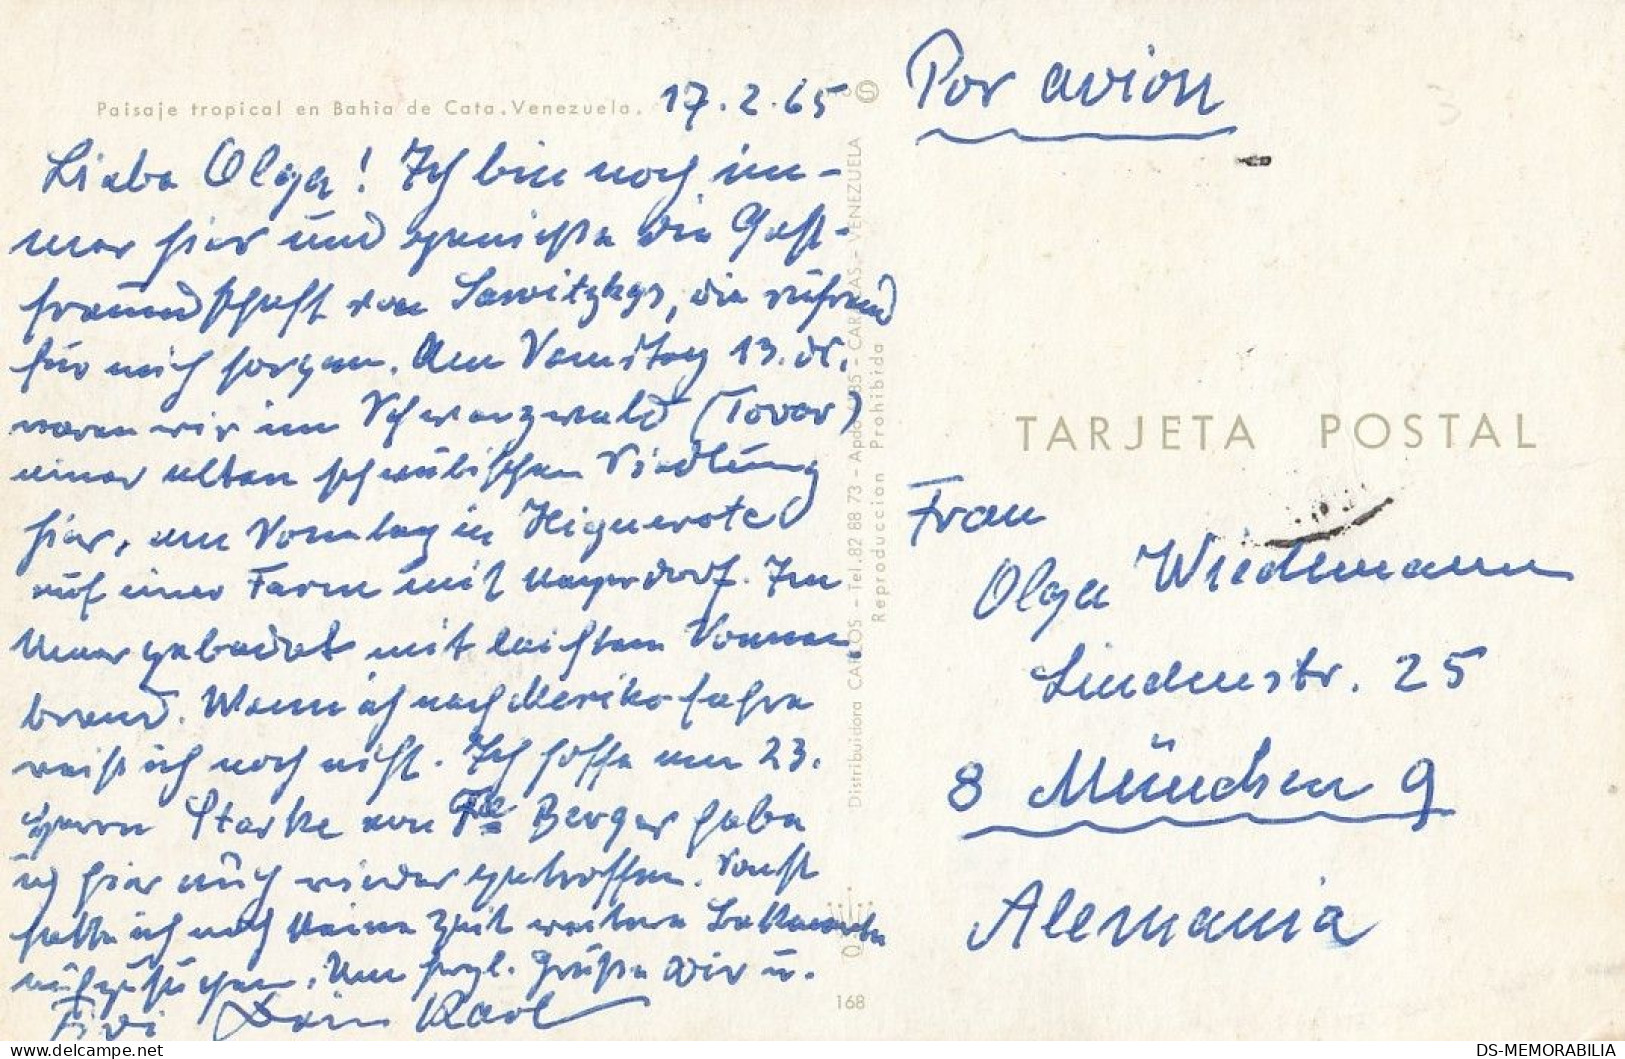 Paisaje tropical en Bahia de Cata. Venezuela.
17.2.65
Liebe Olga! Ich bin noch im-
mer hier und genieße die Gast-
freundschaft von Sawitzkys, die rührend
für mich sorgen. Am Samstag 13. ds.
waren wir im Schwarzwald (Tovar)
einer alten schwäbischen Siedlung
hier, am Sonntag in Higuerote
auf einer Farm mit Im
Meer gebadet mit leichtem Sonnen
brand. Wann ich nach Mexiko fahre
weiß ich noch nicht. Ich hoffe am 23.
Herrn Starke von Fa Berger habe
ich hier auch wieder getroffen. Sonst
hatte ich noch keine Zeit weitere Bekannte
aufzusuchen. Um herzl. Grüße Dir u.
Fridi Dein Karl
Por avion
TARJETA POSTAL
Frau
Olga Wiedemann
Lindenstr. 25
8 München 9
Alemania
Distribuidora CARLOS - Tel. 82 88 73 - CARACAS - VENEZUELA
Reproduccion Prohibida
168
DS-MEMORABILIA